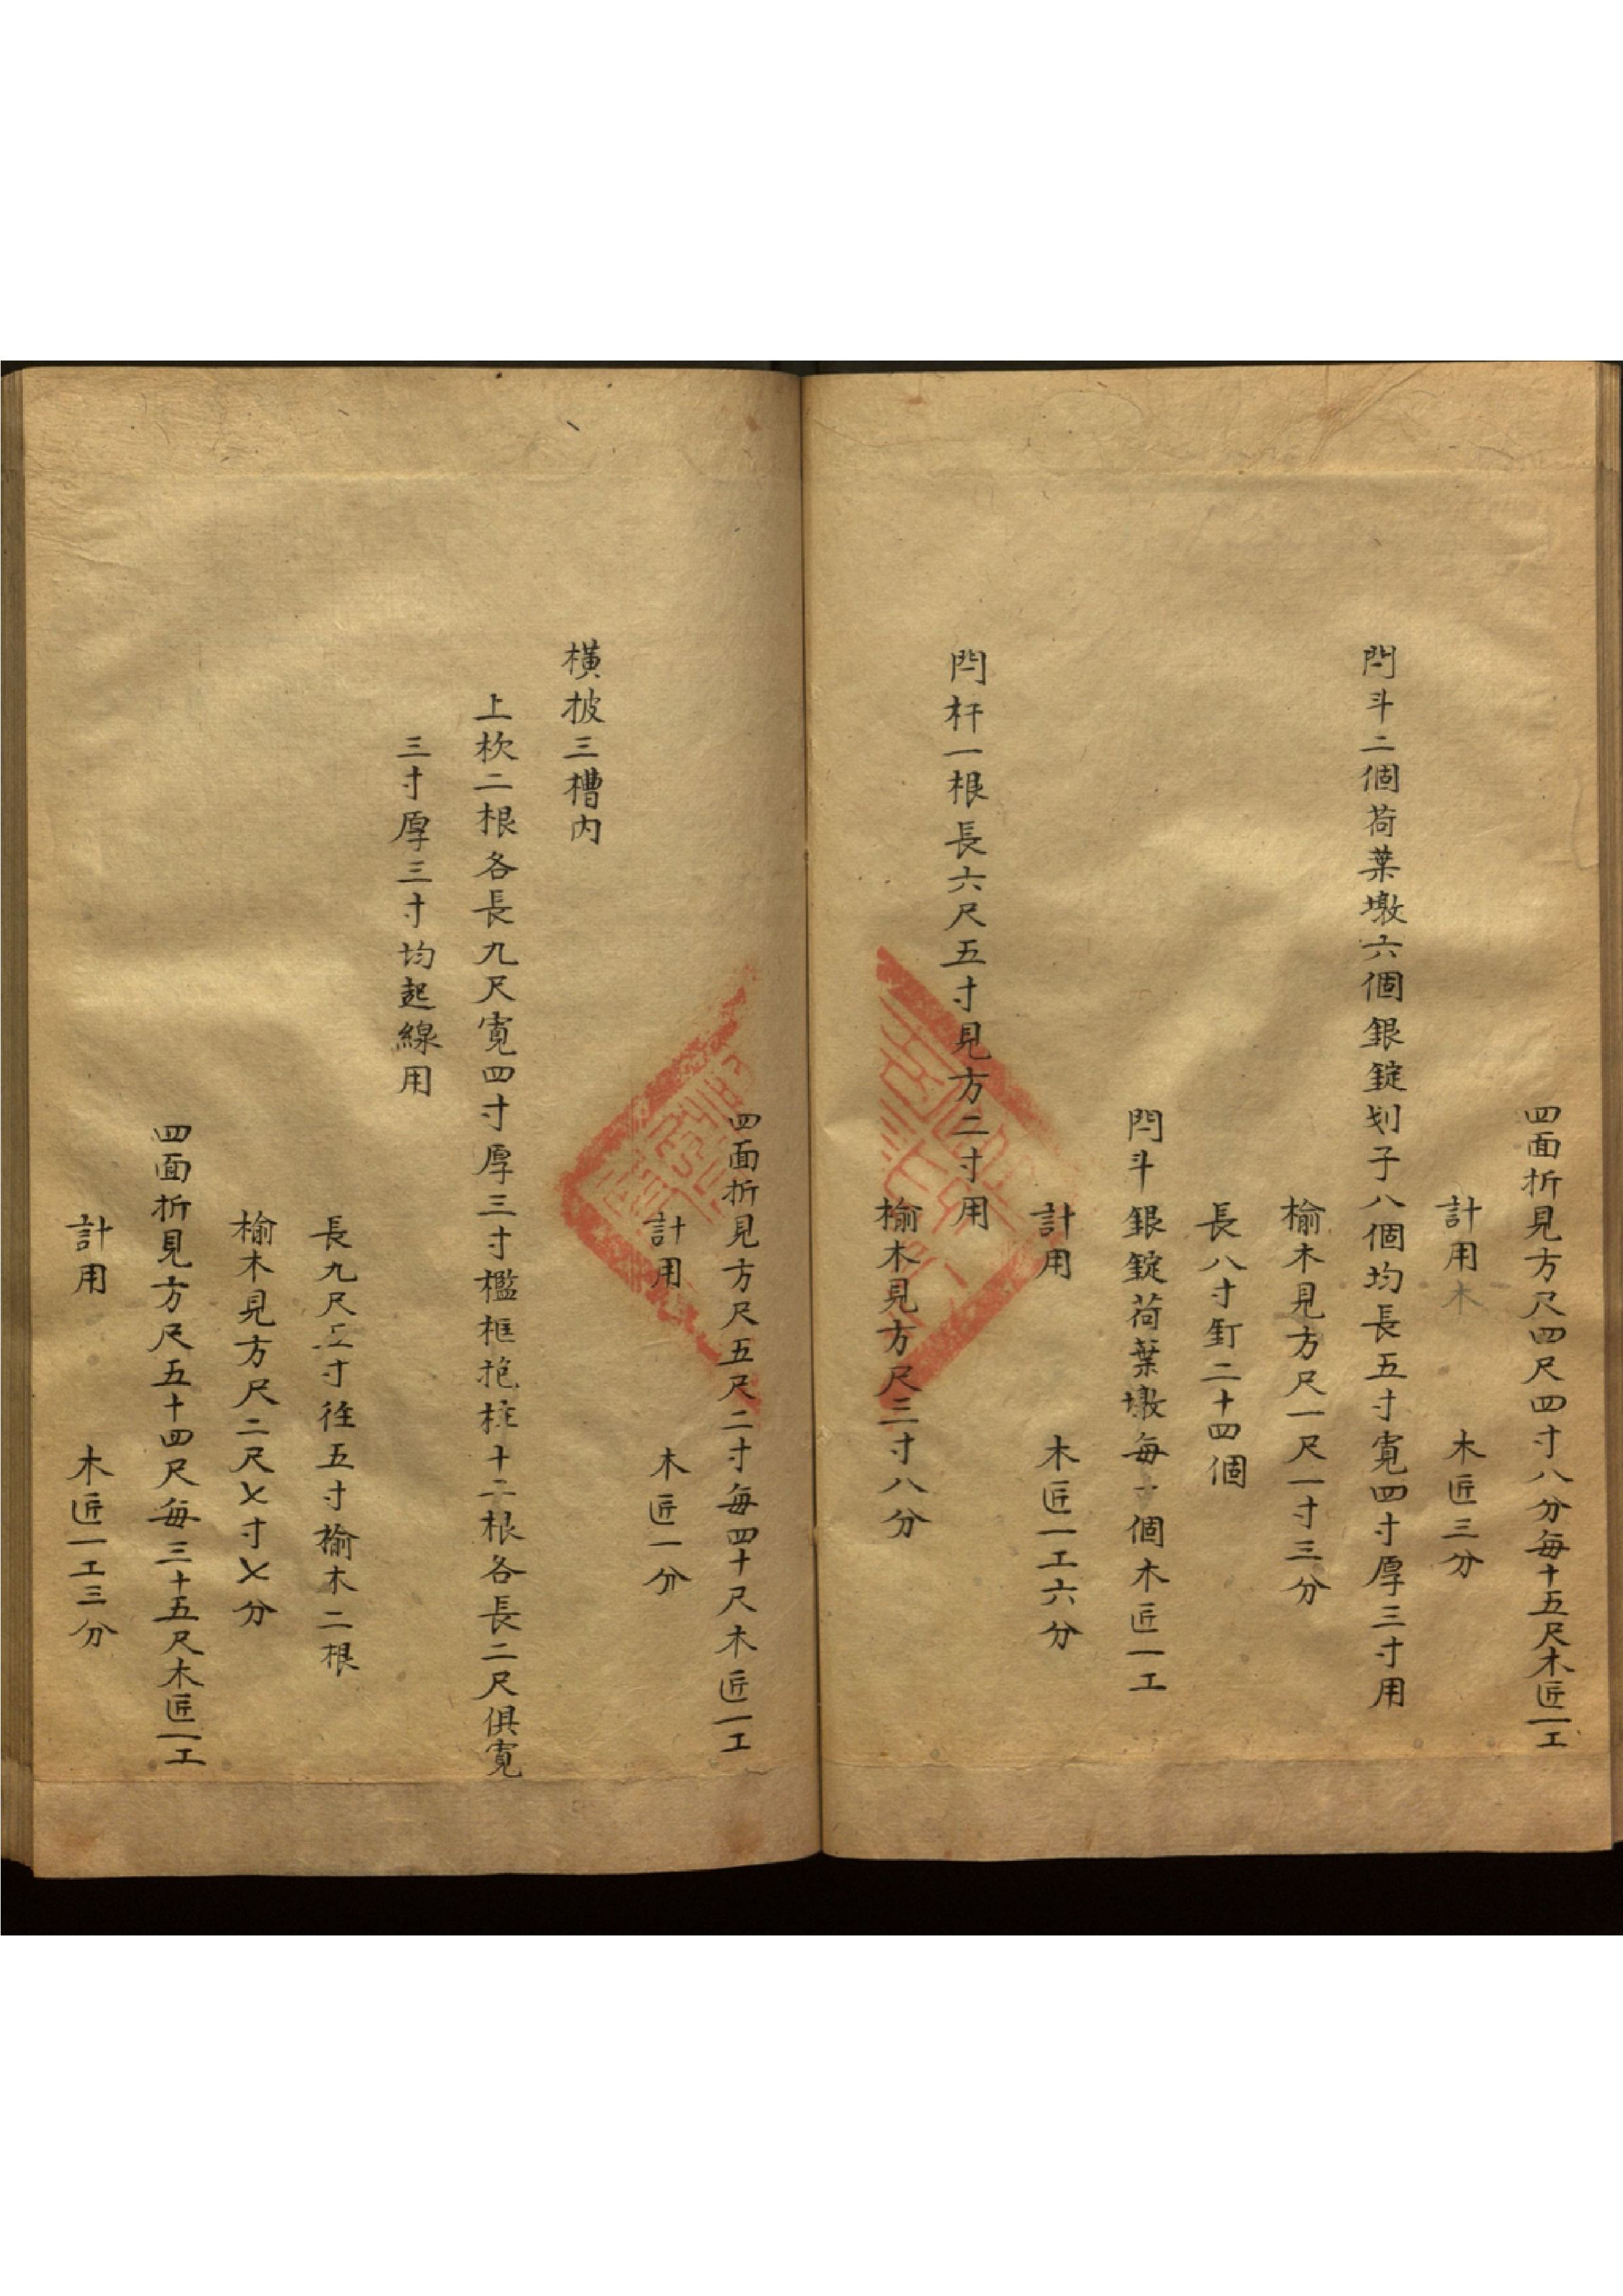 四面折見方尺四尺四寸八分每十五尺木匠一工
計用木　木匠三分
閂斗二個荷葉墩六個銀錠划子八個均長五寸寬四寸厚三寸用
榆木見方尺一尺一寸三分
長八寸釘二十四個
閂斗銀錠荷葉墩每十個木匠一工
計用　木匠一工六分
閂杆一根長六尺五寸見方二寸用
榆木見方尺三寸八分
四面折見方尺五尺二寸每四十尺木匠一工
計用　木匠一分
橫披三槽內
上杦二根各長九尺寬四寸厚三寸檻框抱柱十二根各長二尺俱寬
三寸厚三寸均起線用
長九尺五寸徑五寸榆木二根
榆木見方尺二尺七寸七分
四面折見方尺五十四尺每三十五尺木匠一工
計用　木匠一工三分